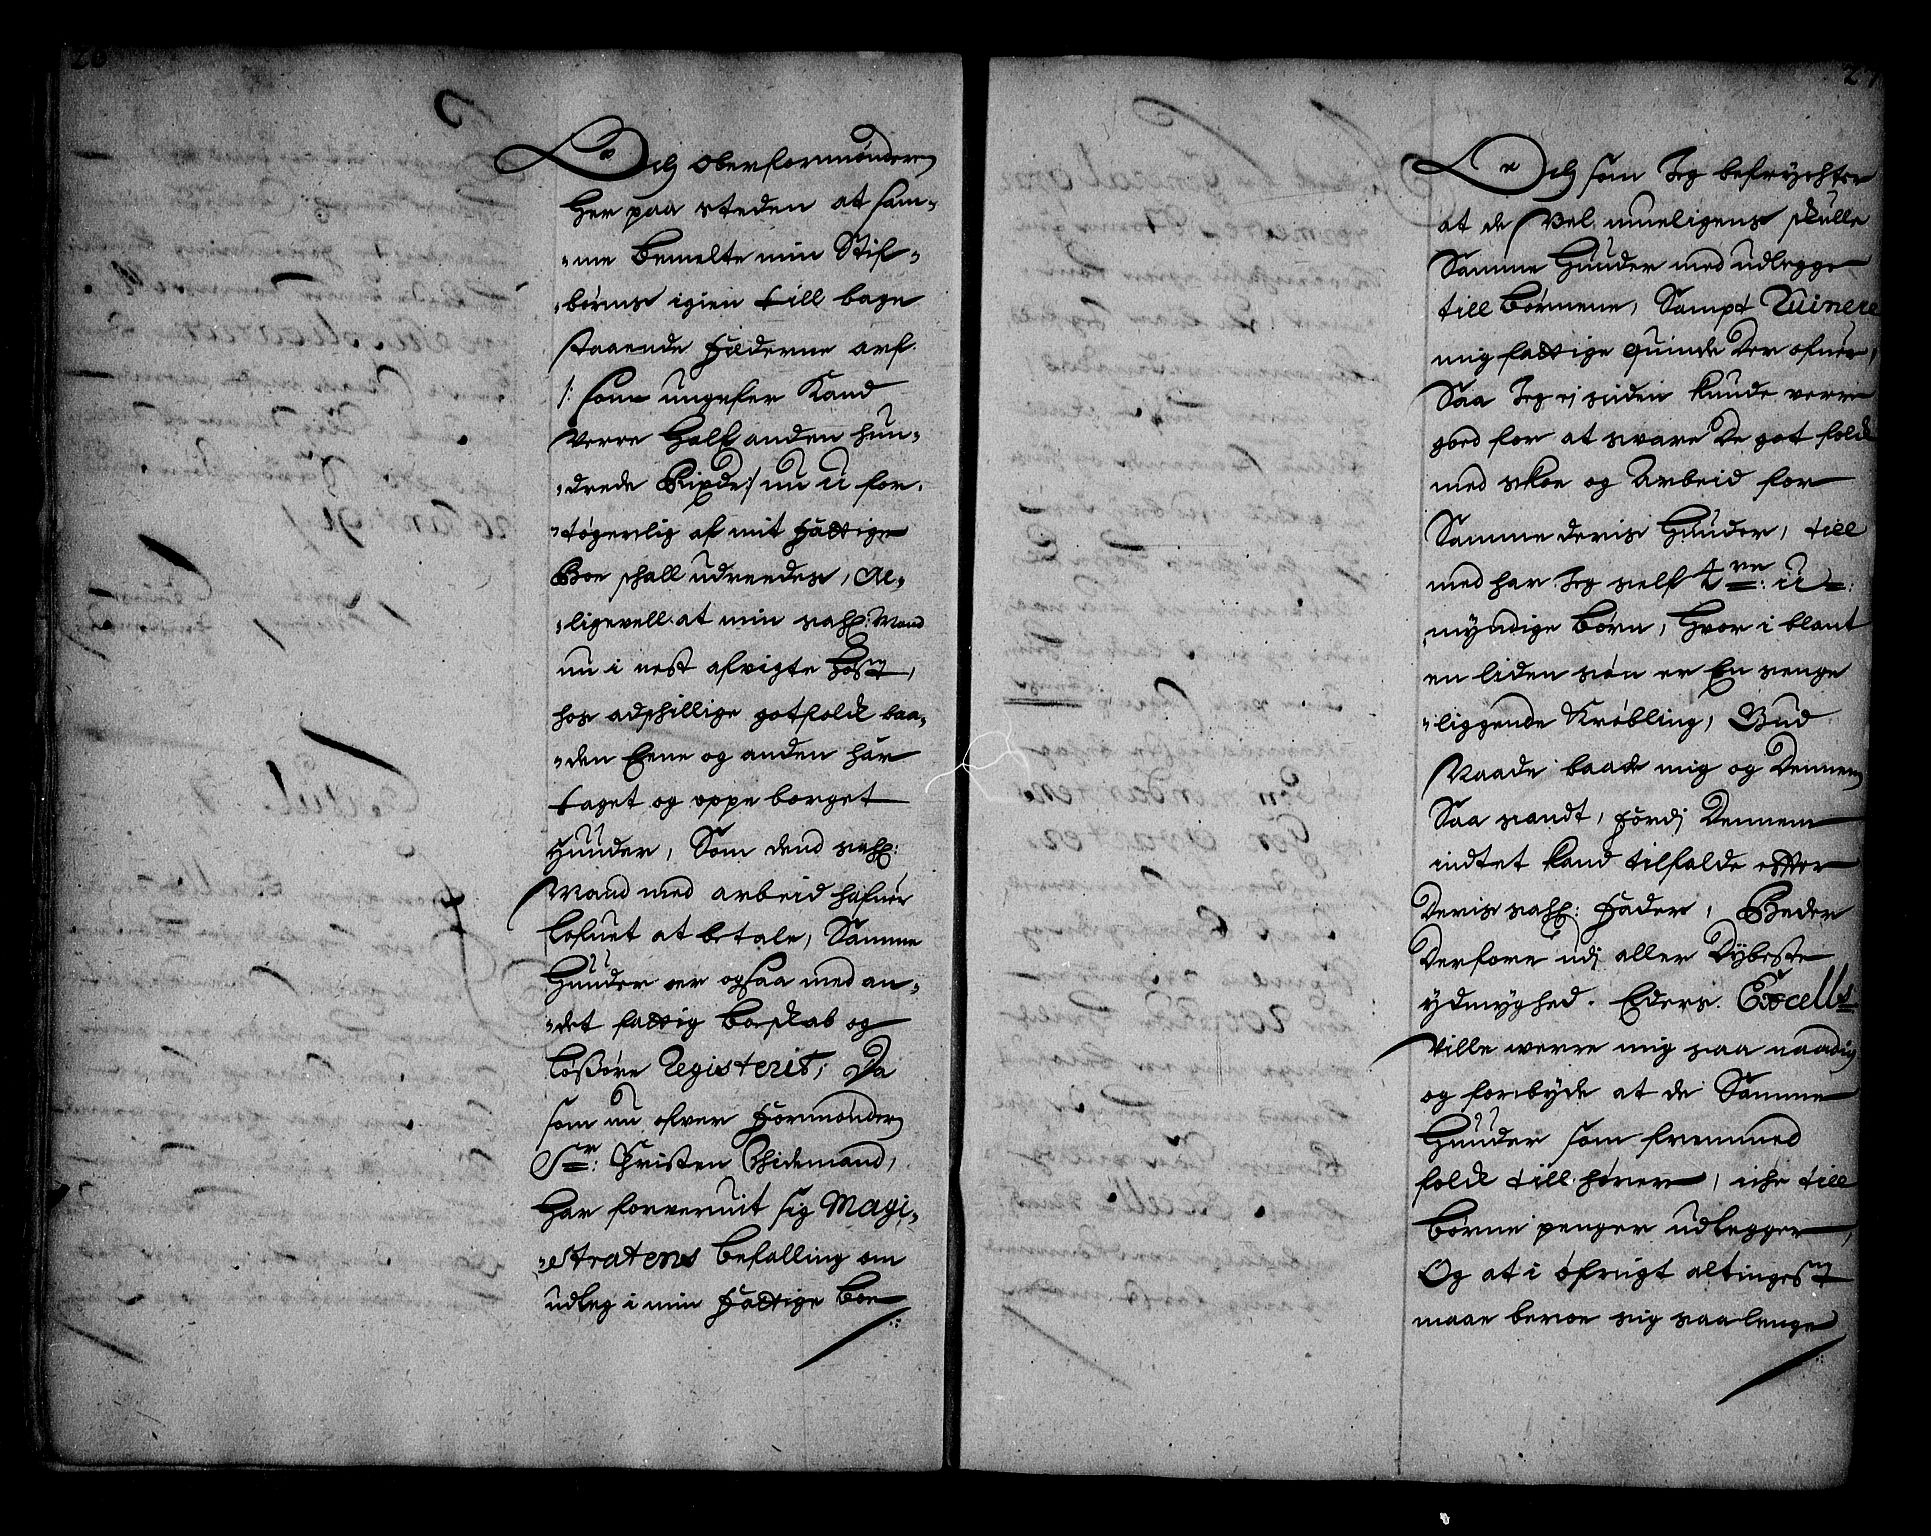 26
Och oberformønderen
her paa steden at sam-
-me bemelte min Stif-
-børns igien till bage
staaende Fæderne arf
/: som ungefer Kand
verre half anden hun-
-drede Rixdr:/ nu u for-
-tøgerlig af mit Fattige
Boe schall udreedes, Al-
-ligevell at min sahl: Mand
nu i nest afvigte Høst,
hos adschillige gotfolck baa-
-den Eene og anden har
taget og oppe borget
Huuder, Som dend sahl:
Mand med arbeid hafuer
lofuet at betale, Samme
Huuder er ogsaa med an-
-det fattig boeskab og
løsøre Registerit, Da
som nu ofver Formønder
Sr: Christen Widemand,
har forveruit sig Magi-
-stratens befalling om
udleg i min Fattige Boe
27
Och som Jeg befrychter
at de Vel mueligens skulle
Samme Huuder med udlegge
till Børnene, Sampt Ruinere
mig fattige quinde Der ofuer,
Saa Jeg ej siden kunde verre
goed for at svare De got folck
med skoe og Arbeid for
Samme deris Huuder, till
med har Jeg self 4re: U=
myndige Børn, Hvor i blant
en liden søn er En senge
-liggende Krøbling, Gud
Naade baade mig og Dennem
Saa sandt, fordj Dennem
indtet kand tilfalde efter
Deris sahl: Fader, Beder
Derfore udj aller Dybeste
ydmyghed. Eders Excells
Ville werre mig saa naadig
og forbyde at de Samme
Huuder som fremmed
folck till hører, iche till
børne penger udlegger,
Og at i øfrigt altingest
maae beroe sig saalenge